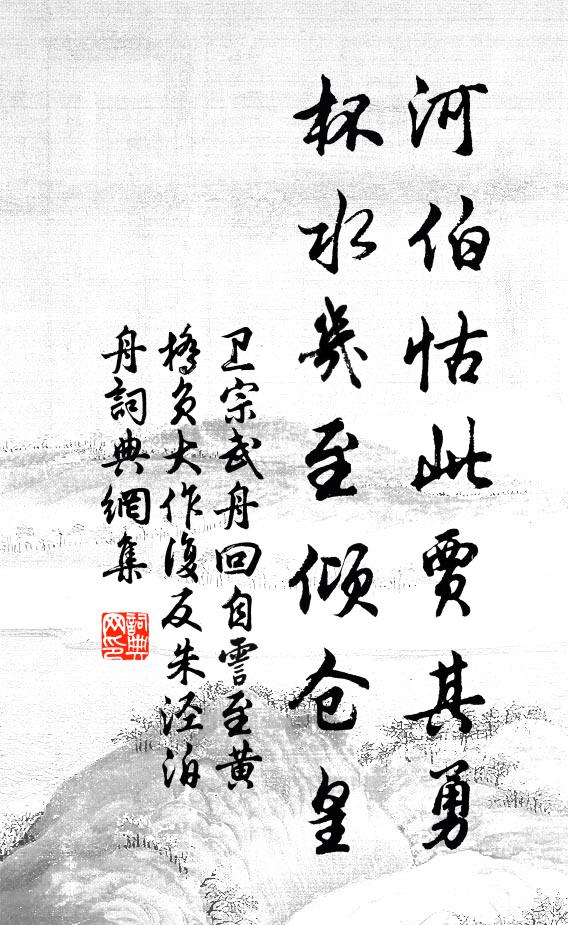 河伯怙此贾其勇
杯水幾至倾仓皇
卫宗武舟回自霅至黄
橋负大作復反朱泾泊
舟詞典網集
詞典
网印